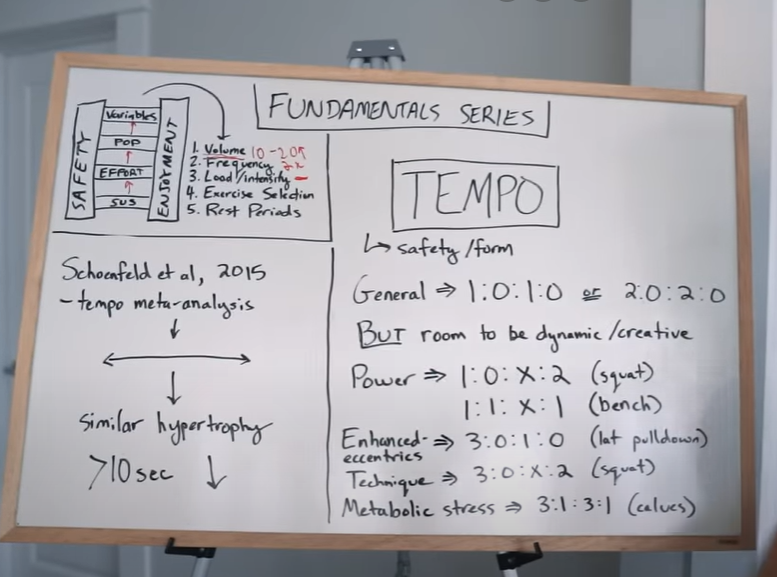 FUNDAMENTALS SERIES
SAFETY
Variables
POP
EFFORT
SUS
ENJOYMENT
1. Volume 10-20↑
2. Frequency 2x
3. Load/intensity -
4. Exercise Selection
5. Rest Periods
Schoenfeld et al, 2015
- tempo meta-analysis
↓
↔
↓
Similar hypertrophy
>10 sec ↓
TEMPO
↳ safety/form
General ⇒ 1:0:1:0 or 2:0:2:0
BUT room to be dynamic/creative
Power ⇒ 1:0:X:2 (squat)
1:1:X:1 (bench)
Enhanced- ⇒ 3:0:1:0 (lat pulldown)
eccentrics
Technique ⇒ 3:0:X:2 (squat)
Metabolic stress ⇒ 3:1:3:1 (calves)